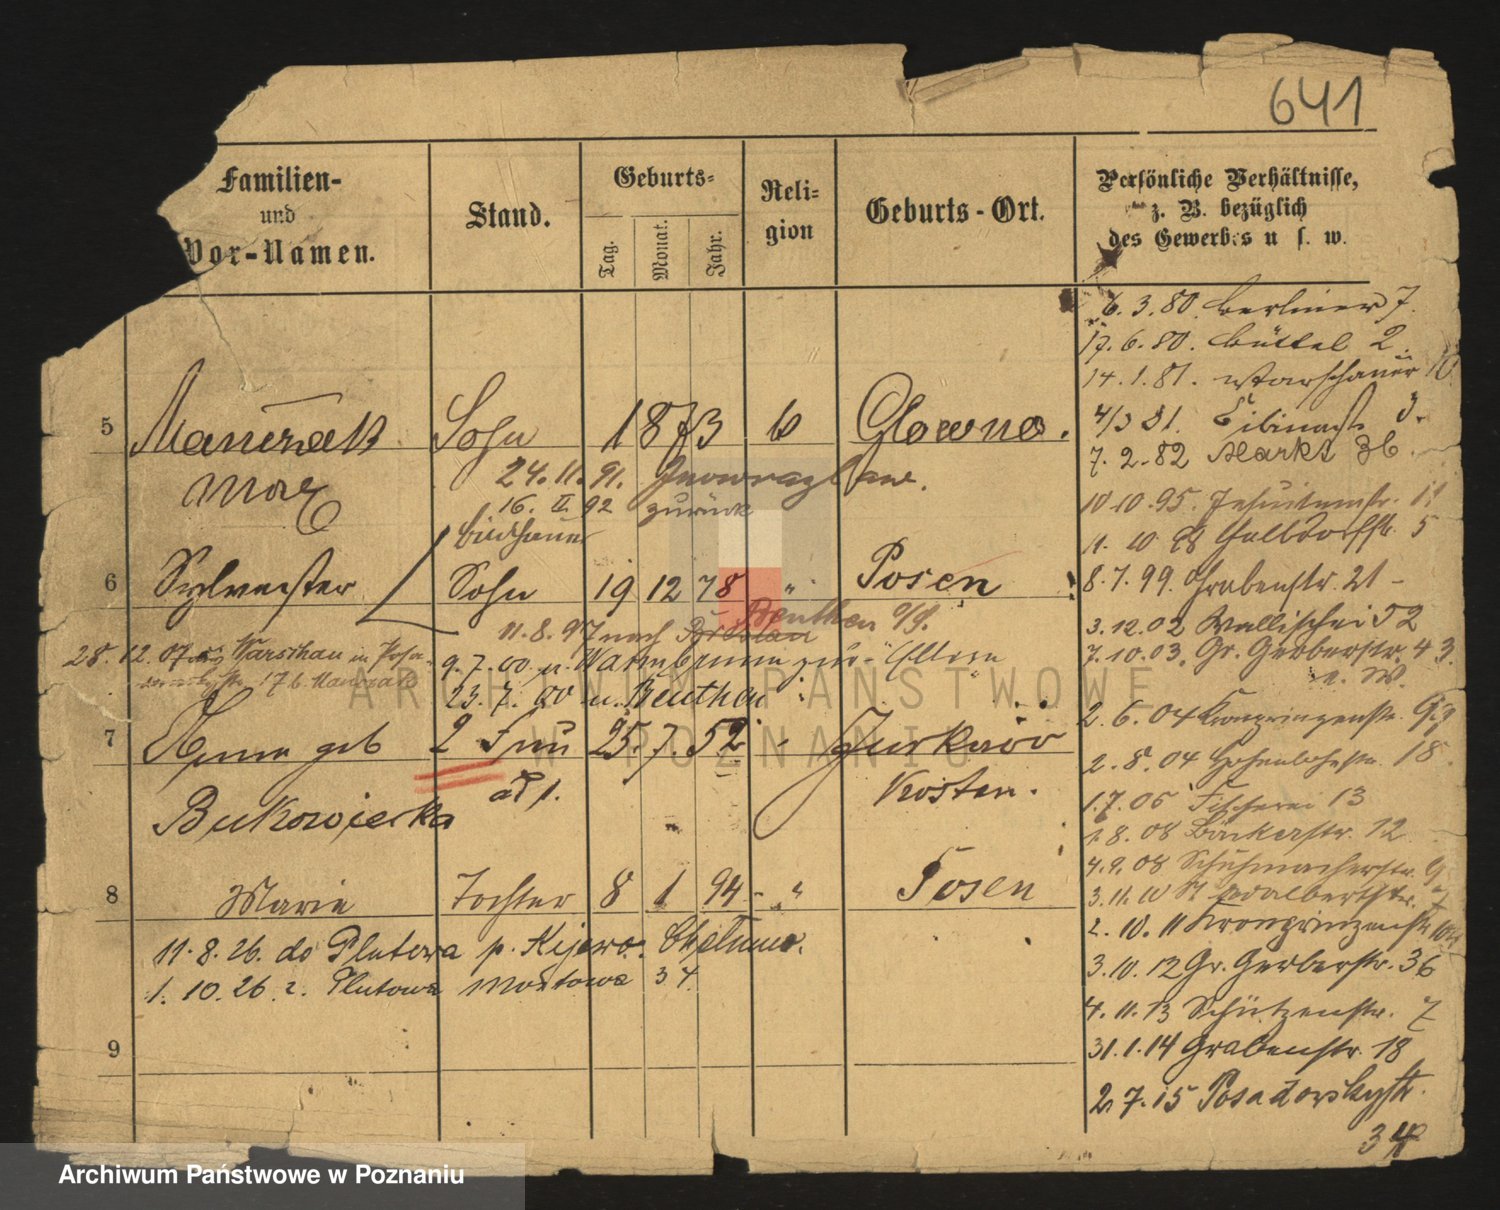 641
Familien-
und
Vor-Namen.
Stand.
Geburts-
Tag.
Monat.
Jahr.
Reli-
gion
Geburts-Ort.
Persönliche Verhältnisse,
z. B. bezüglich
des Gewerbes u s. w.
5 Manczak Sohn 1 8 73 k Glowno.
Max
24. 11. 91. Inowrazlaw.
16. II. 92 zurück
Bildhauer
6 Sylvester Sohn 19 12 78 " Posen
11.8.97 nach Breslau Beuthen O/S.
28. 12. 07 Warschau in
9.7.00 n. Warmbrunn zur. Eltern
176 Manczak
23.7.00 n. Beuthen
7 Anna geb 2 Frau 25. 7. 52 Gurkowo
ad 1. Kosten.
Bukowiecka
8 Marie Tochter 8 1 94 - " Posen
11. 8. 26. do Plutowa p. Kijewo. Chełmno.
1. 10. 26 z. Plutowa Mostowa 34
9
6. 3. 80. Berliner 7.
17. 6. 80. Büttel 2.
14. 1. 81. Warschauer 10
4/3 81. 3.
7. 2. 82 Markt 36.
10.10.95. Jesuitenstr. 11
11. 10 98 Halbdorffstr. 5
8. 7. 99. Grabenstr. 21 -
3.12.02 Wallischei 52
7.10.03. Gr. Gerberstr. 43
2. 6. 04 Kronprinzenstr. 99
2. 8. 04 Hohenlohestr. 18.
1.7.05 Fischerei 13
1. 8. 08 Bäckerstr. 12
4.9.08 Schuhmacherstr. 9
3.11.10 St Adalbertstr. 7
2. 10. 11 Kronprinzenstr
3.10.12 Gr. Gerberstr. 36
4. 11. 13 Schützenstr. 7
31.1.14 Grabenstr. 18
2. 7. 15 Posadowskystr.
34
ARCHIWUM PAŃSTWOWE
W POZNANIU
Archiwum Państwowe w Poznaniu